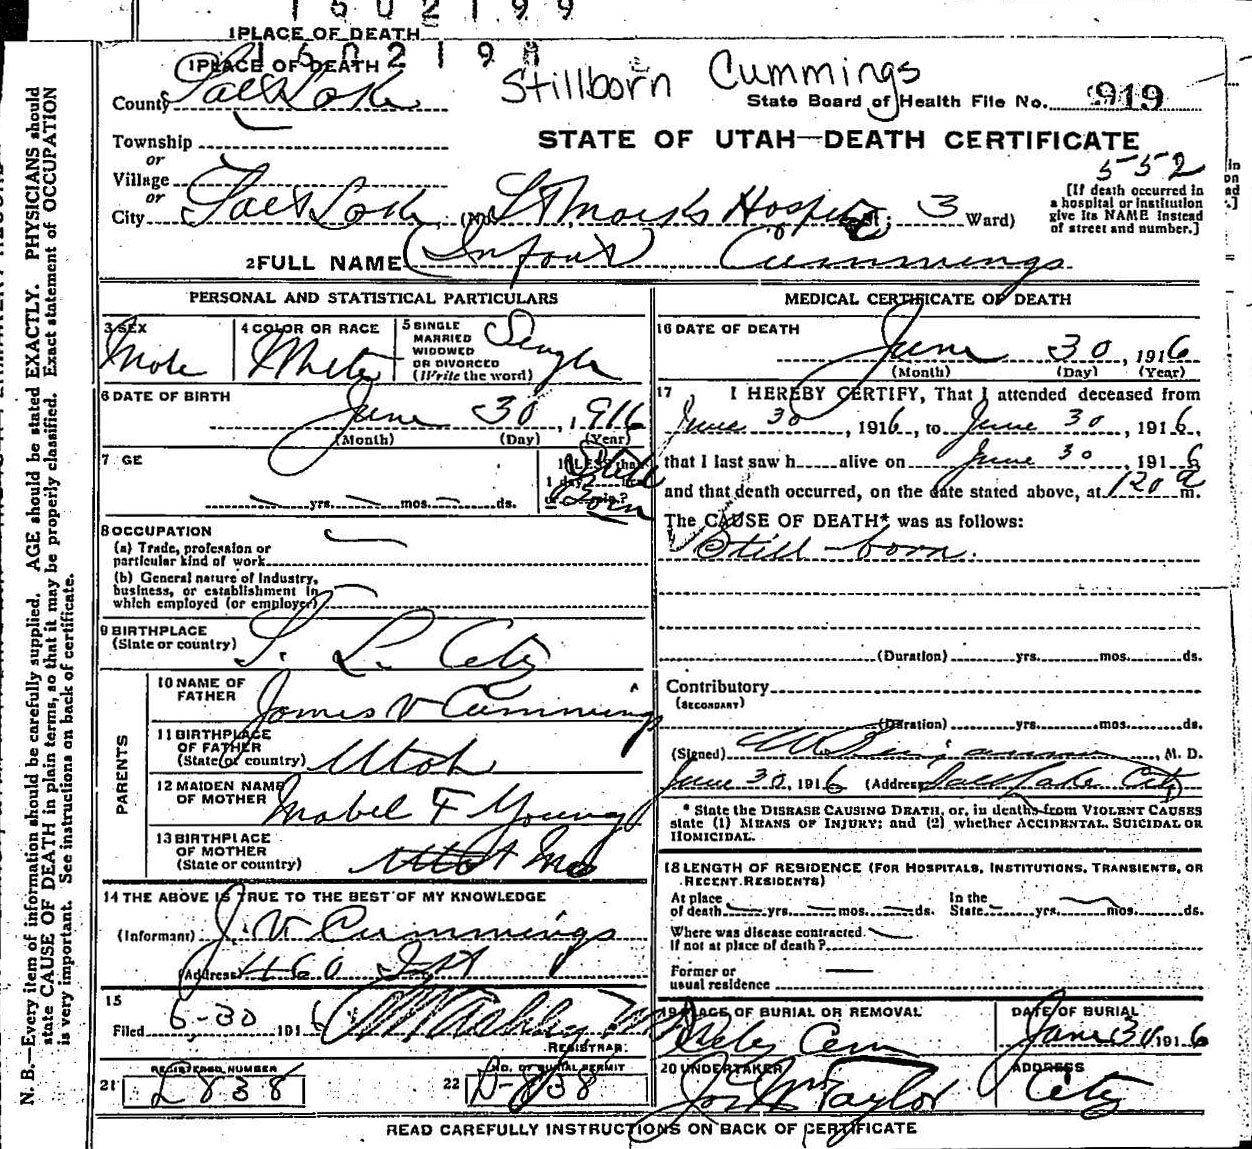 1502199
1PLACE OF DEATH
150219
1PLACE OF DEATH
Stillborn Cummings
County Salt Lake
State Board of Health File No. 919
Township
STATE OF UTAH—DEATH CERTIFICATE
or
552
Village
or
[If death occurred in
a hospital or institution
give its NAME instead
of street and number.]
City Salt Lake (No. St Marks Hospital St; 3 Ward)
2FULL NAME (Infant) Cummings
PERSONAL AND STATISTICAL PARTICULARS
3 SEX
Male
4 COLOR OR RACE
White
5 SINGLE
MARRIED
WIDOWED
OR DIVORCED
(Write the word)
Single
6 DATE OF BIRTH
June 30, 1916
(Month) (Day) (Year)
7 GE
yrs. mos. ds.
If LESS than
1 day, hrs.
or min.?
Still
Born
8 OCCUPATION
(a) Trade, profession or
particular kind of work
(b) General nature of Industry,
business, or establishment in
which employed (or employer)
9 BIRTHPLACE
(State or country)
S. L. City
PARENTS
10 NAME OF
FATHER
James V Cummings
11 BIRTHPLACE
OF FATHER
(State or country)
Utah
12 MAIDEN NAME
OF MOTHER
Mabel F Young
13 BIRTHPLACE
OF MOTHER
(State or country)
Utah Mo
14 THE ABOVE IS TRUE TO THE BEST OF MY KNOWLEDGE
(Informant) J. V. Cummings
(Address)
15
Filed 6-30 1916
REGISTRAR.
21 REGISTERED NUMBER
L838
22 NO. OF BURIAL PERMIT
D-838
MEDICAL CERTIFICATE OF DEATH
16 DATE OF DEATH
June 30, 1916
(Month) (Day) (Year)
17 I HEREBY CERTIFY, That I attended deceased from
June 30, 1916, to June 30, 1916,
that I last saw h alive on June 30, 1916
and that death occurred, on the date stated above, at 120 a m.
The CAUSE OF DEATH* was as follows:
Still-born.
(Duration) yrs. mos. ds.
Contributory
(SECONDARY)
(Duration) yrs. mos. ds.
(Signed) M. D.
June 30, 1916 (Address) Salt Lake City
* State the DISEASE CAUSING DEATH, or, in deaths from VIOLENT CAUSES
state (1) MEANS OF INJURY; and (2) whether ACCIDENTAL, SUICIDAL OR
HOMICIDAL.
18 LENGTH OF RESIDENCE (FOR HOSPITALS, INSTITUTIONS, TRANSIENTS, OR
RECENT RESIDENTS)
At place
of death yrs. mos. ds.
In the
State yrs. mos. ds.
Where was disease contracted
If not at place of death?
Former or
usual residence
19 PLACE OF BURIAL OR REMOVAL
City Cem
DATE OF BURIAL
June 30 1916
20 UNDERTAKER
Jos Wm Taylor
ADDRESS
City
READ CAREFULLY INSTRUCTIONS ON BACK OF CERTIFICATE
N. B.—Every item of information should be carefully supplied. AGE should be stated EXACTLY. PHYSICIANS should
state CAUSE OF DEATH in plain terms, so that it may be properly classified. Exact statement of OCCUPATION
is very important. See instructions on back of certificate.